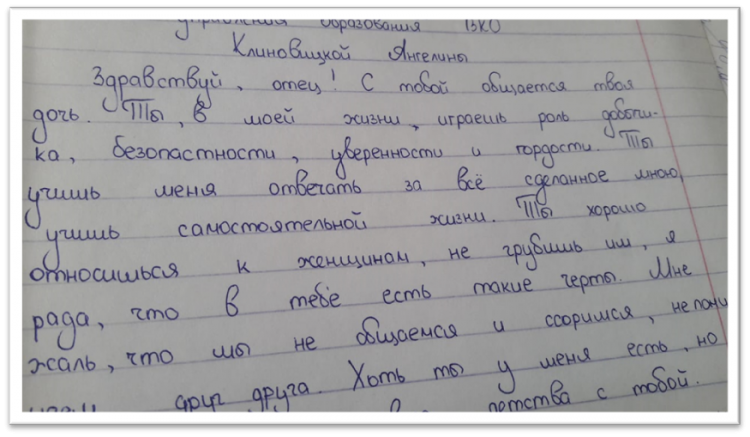 управления образования ВКО
Клиновицкой Ангелины
Здравствуй, отец! С тобой общается твоя
дочь. Ты, в моей жизни, играешь роль добытчи-
ка, безопастности, уверенности и гордости. Ты
учишь меня отвечать за всё сделанное мною,
учишь самостоятельной жизни. Ты хорошо
относишься к женщинам, не грубишь им, я
рада, что в тебе есть такие черты. Мне
жаль, что мы не общаемся и ссоримся, не пони
друг друга. Хоть ты у меня есть, но
детства с тобой.